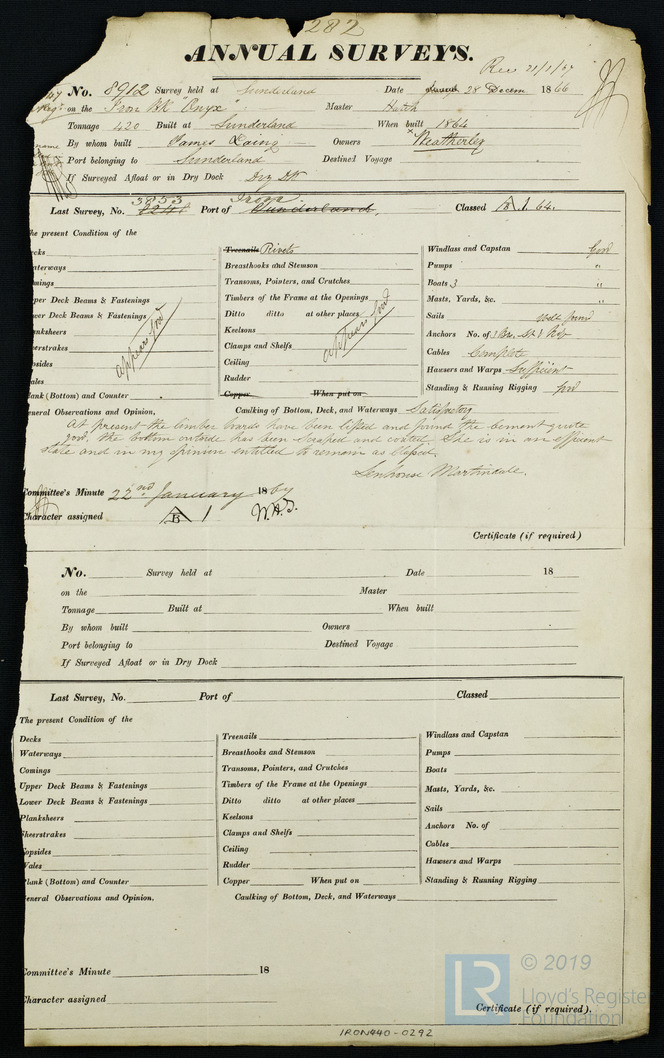 282
ANNUAL SURVEYS.
Rec 21/1/67
No. 8912 Survey held at Sunderland Date 28 Decem 1866
on the Iron Bk "Onyx" Master Hatch
Tonnage 420 Built at Sunderland When built 1864
By whom built James Laing Owners Weatherley
Port belonging to Sunderland Destined Voyage
If Surveyed Afloat or in Dry Dock Dry Dk
3853 Iron
Last Survey, No. Port of Sunderland, Classed A 1. 64.
he present Condition of the
ecks
aterways
mings
per Deck Beams & Fastenings
ower Deck Beams & Fastenings
anksheers
eerstrakes
psides
ales
lank (Bottom) and Counter
appears good
Treenails Rivets
Breasthooks and Stemson
Transoms, Pointers, and Crutches
Timbers of the Frame at the Openings
Ditto ditto at other places
Keelsons
Clamps and Shelfs
Ceiling
Rudder
Copper When put on
appears good
Windlass and Capstan Good
Pumps "
Boats 3 "
Masts, Yards, &c. "
Sails well found
Anchors No. of 3
Cables Complete
Hawsers and Warps Sufficient
Standing & Running Rigging good
eneral Observations and Opinion, Caulking of Bottom, Deck, and Waterways Satisfactory
At present the limber boards have been lifted and found the cement quite
good, the bottom outside has been scraped and coated. She is in an efficient
state and in my opinion entitled to remain as Classed.
Senhouse Martindale.
Committee's Minute 22nd January 1867
Character assigned A 1
B
Certificate (if required)
No. Survey held at Date 18
on the Master
Tonnage Built at When built
By whom built Owners
Port belonging to Destined Voyage
If Surveyed Afloat or in Dry Dock
Last Survey, No. Port of Classed
The present Condition of the
Decks
Waterways
Comings
Upper Deck Beams & Fastenings
Lower Deck Beams & Fastenings
Planksheers
heerstrakes
opsides
Vales
lank (Bottom) and Counter
Treenails
Breasthooks and Stemson
Transoms, Pointers, and Crutches
Timbers of the Frame at the Openings
Ditto ditto at other places
Keelsons
Clamps and Shelfs
Ceiling
Rudder
Copper When put on
Windlass and Capstan
Pumps
Boats
Masts, Yards, &c.
Sails
Anchors No. of
Cables
Hawsers and Warps
Standing & Running Rigging
eneral Observations and Opinion. Caulking of Bottom, Deck, and Waterways
Committee's Minute 18
Character assigned
Certificate (if required).
IRON440-0292
LR © 2019
Lloyd's Register
Foundation